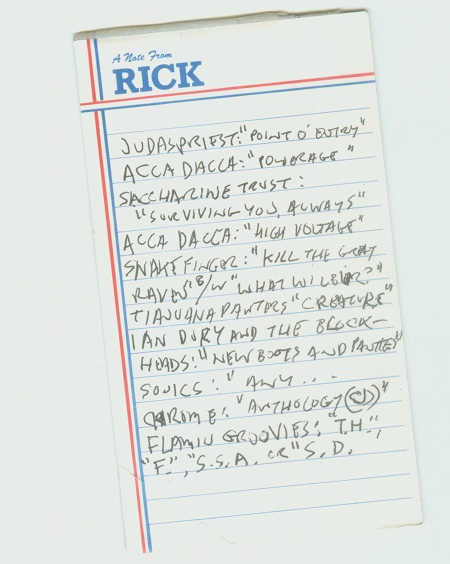 A Note From
RICK
JUDAS PRIEST: "POINT O' ENTRY"
ACCA DACCA: "POWERAGE"
SACCHARINE TRUST:
"SURVIVING YOU, ALWAYS"
ACCA DACCA: "HIGH VOLTAGE"
SNAKEFINGER: "KILL THE GREAT
RAVEN" B/W "WHAT WILBUR?"
TIAJUANA PANTERS "CREATURE"
IAN DURY AND THE BLOCK-
HEADS: "NEW BOOTS AND PANTIES"
SONICS: "ANY...
CHROME: "ANTHOLOGY (CD)"
FLAMIN GROOVIES: "T.H.",
"F.", "S.S.A. OR "S.D.